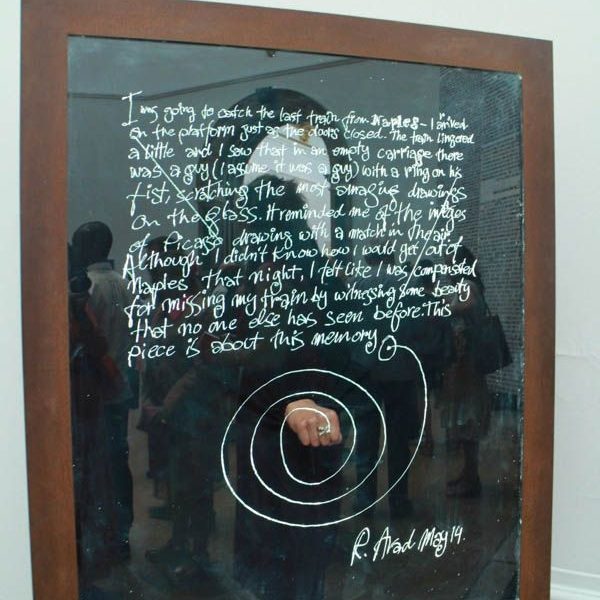 I was going to catch the last train from Naples - I arrived
on the platform just as the doors closed. The train lingered
a little and I saw that in an empty carriage there
was a guy (I asume it was a guy) with a ring on his
fist, scratching the most amazing drawings
on the glass. It reminded me of the images
of Picaso drawing with a match in the air.
Although I didn't know how I would get out of
Naples that night, I felt like I was compensated
for missing my train by witnessing some beauty
that no one else has seen before. This
piece is about this memory
R. Arad May 14.